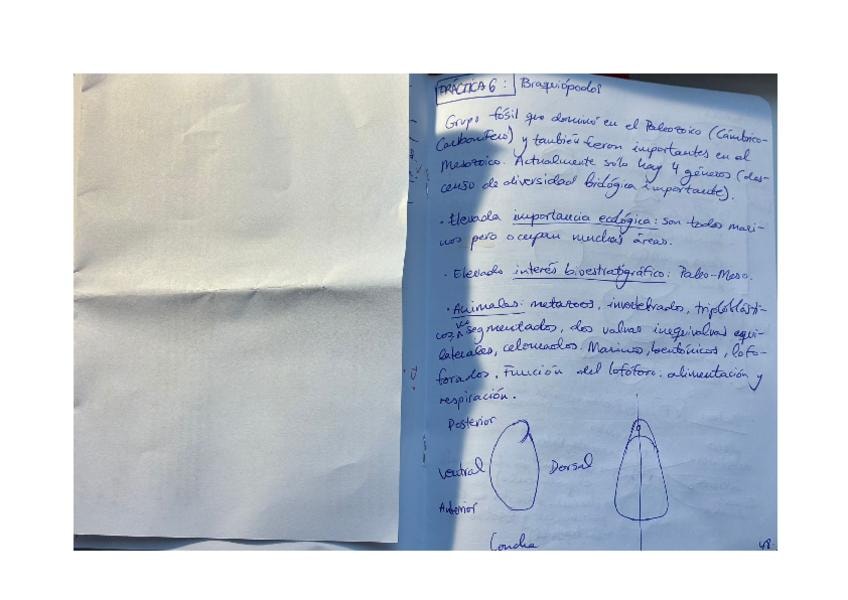 PRÁCTICA 6: Braquiópodos
Grupo fósil que dominó en el Paleozoico (Cámbrico-
Carbonífero) y también fueron importantes en el
Mesozoico. Actualmente solo hay 4 géneros (des-
censo de diversidad biológica importante).
· Elevada importancia ecológica: son todos mari-
nos pero ocupan muchas áreas.
· Elevado interés bioestratigráfico: Paleo-Meso.
· Animales: metazoos, invertebrados, triploblásti-
cos, segmentados, dos valvas inequivalvas equi-
laterales, celomados. Marinos, bentónicos, lofo-
forados. Función del lofóforo: alimentación y
respiración.
Posterior
Ventral Dorsal
Anterior
Concha
48